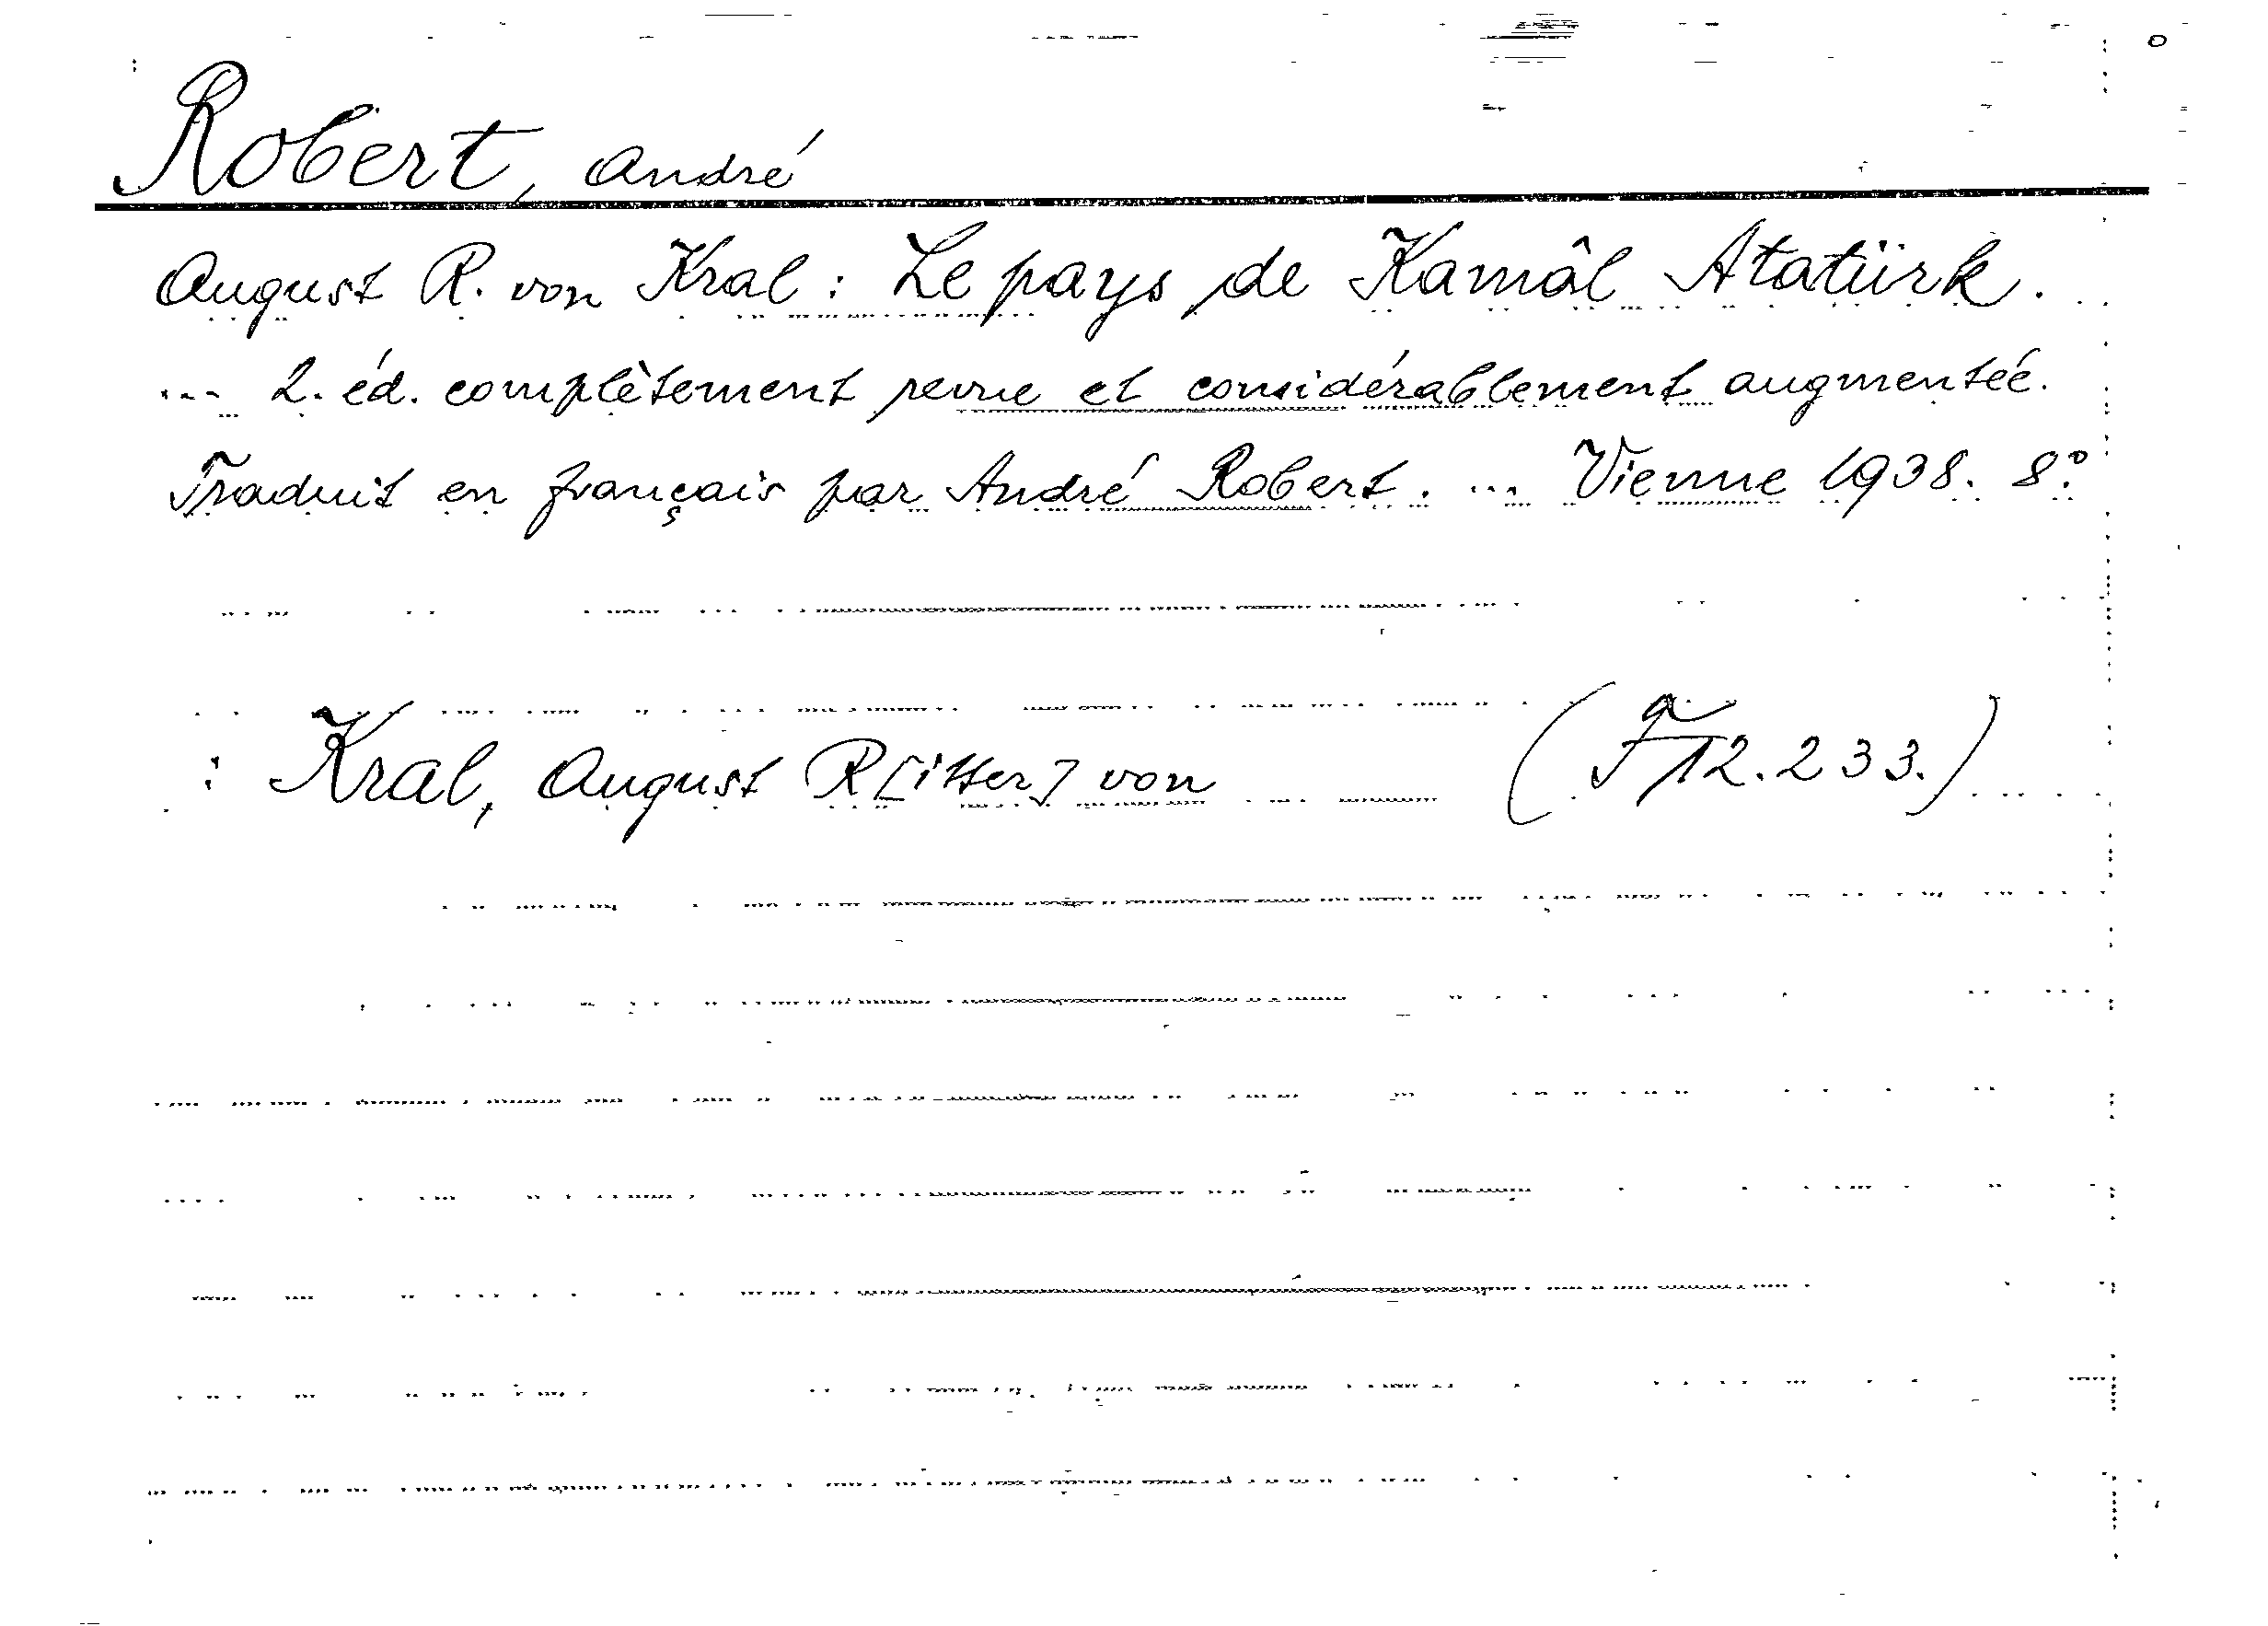 Robert, André
August R. von Kral : Le pays de Kamâl Atatürk.
... 2. éd. complètement revue et considérablement augmentée.
Traduit en français par André Robert. ... Vienne 1938. 8°.
: Kral, August R[itter] von (F 12.233.)